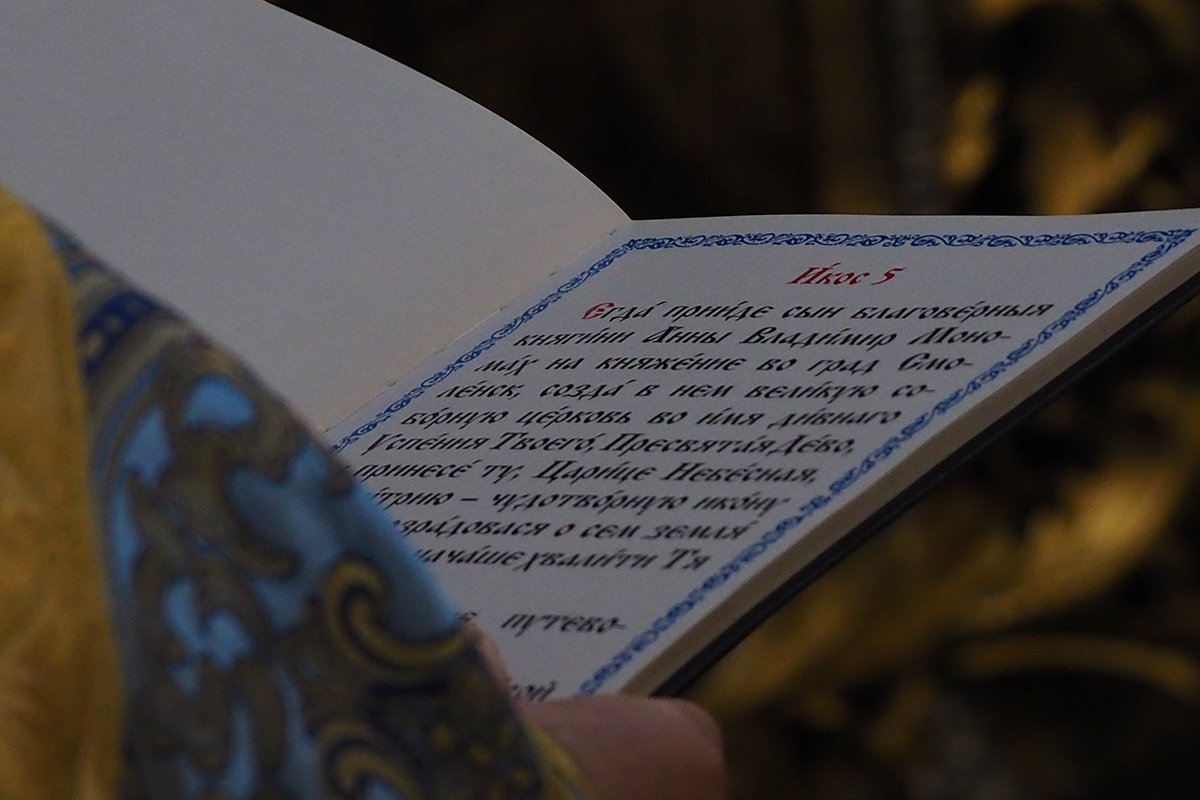 И́кос 5
Егда́ прии́де сын благове́рныя
княги́ни Анны Влади́мир Моно-
ма́х на княже́ние во град Смо-
ле́нск, созда́ в нем вели́кую со-
бо́рную це́рковь во и́мя ди́внаго
Успе́ния Твоего́, Пресвята́я Де́во,
принесе́ ту, Цари́це Небе́сная,
– чудотво́рную ико́ну
о сем земля́
хвали́ти Тя
путево-